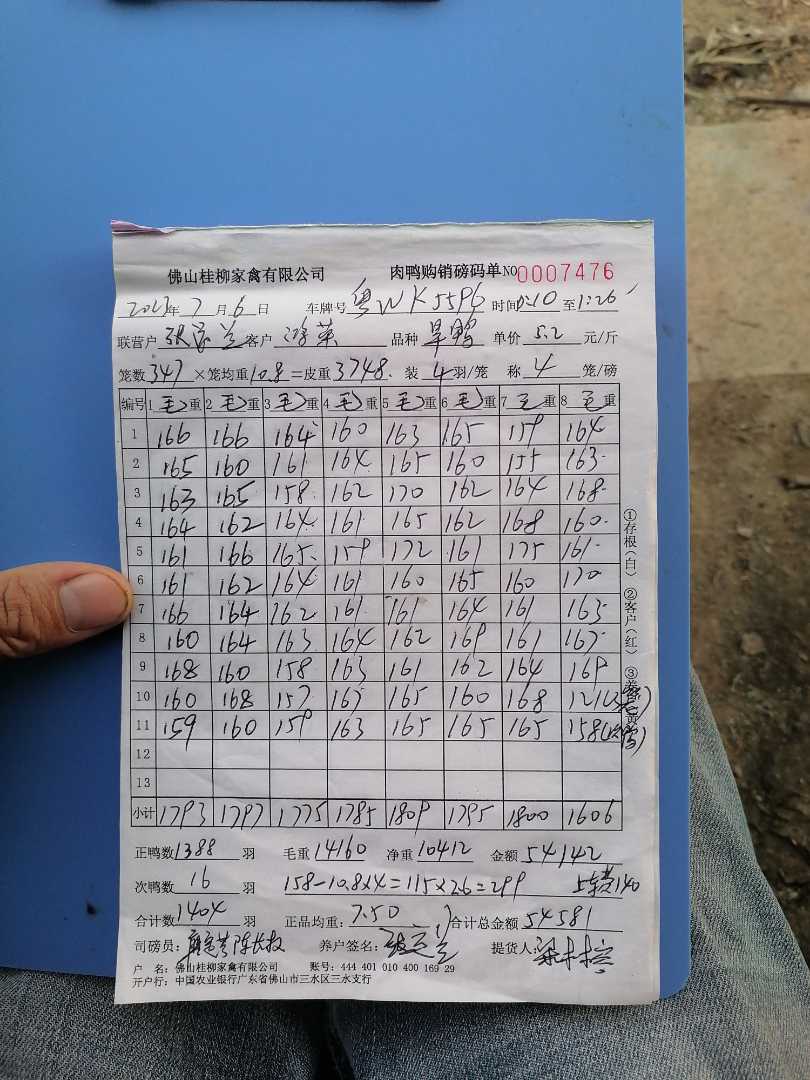 佛山桂柳家禽有限公司 肉鸭购销磅码单 NO 0007476
年 7 月 6 日 车牌号 粤WK5596 时间 0:10 至 1:26
联营户 客户 品种 旱鸭 单价 5.2 元/斤
笼数 347 ×笼均重 10.8 =皮重 3748. 装 4 羽/笼 称 4 笼/磅
编号 1 毛重 2 毛重 3 毛重 4 毛重 5 毛重 6 毛重 7 毛重 8 毛重
1 166 166 164 160 163 165 159 164
2 165 160 161 164 165 160 155 163
3 163 165 158 162 170 162 164 168
4 164 162 164 161 165 162 168 160
5 161 166 165 159 172 161 175 161
6 161 162 164 161 160 165 160 170
7 166 164 162 161 161 164 161 163
8 160 164 163 164 162 169 161 167
9 168 160 158 163 161 162 164 169
10 160 168 157 167 165 160 168 121(3笼)
11 159 160 159 163 165 165 165 158
12
13
小计 1793 1797 1775 1785 1809 1795 1800 1606
①存根(白) ②客户(红) ③
正鸭数 1388 羽 毛重 14160 净重 10412 金额 54142
次鸭数 16 羽 158-10.8×4=115×2.6=299 140
合计数 1404 羽 正品均重: 7.50 合计总金额 54581
司磅员: 养户签名: 提货人:
户 名: 佛山桂柳家禽有限公司 账号: 444 401 010 400 169 29
开户行: 中国农业银行广东省佛山市三水区三水支行